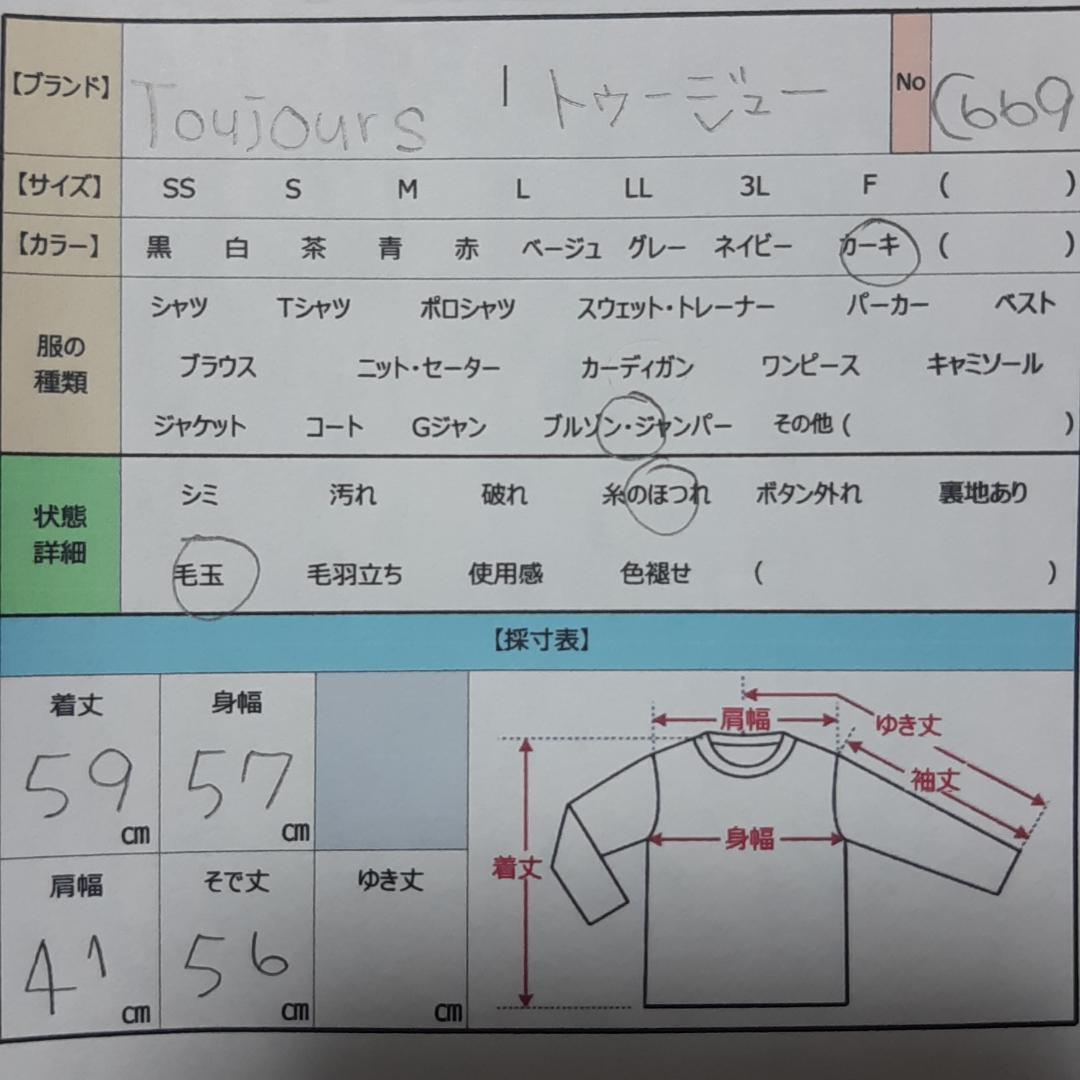 【ブランド】 Toujours | トゥージュー No C669
【サイズ】 SS S M L LL 3L F ( )
【カラー】 黒 白 茶 青 赤 ベージュ グレー ネイビー カーキ ( )
服の種類
シャツ Tシャツ ポロシャツ スウェット・トレーナー パーカー ベスト
ブラウス ニット・セーター カーディガン ワンピース キャミソール
ジャケット コート Gジャン ブルゾン・ジャンパー その他 ( )
状態詳細
シミ 汚れ 破れ 糸のほつれ ボタン外れ 裏地あり
毛玉 毛羽立ち 使用感 色褪せ ( )
【採寸表】
着丈 身幅
59 cm 57 cm
肩幅 そで丈 ゆき丈
41 cm 56 cm cm
肩幅
ゆき丈
袖丈
身幅
着丈